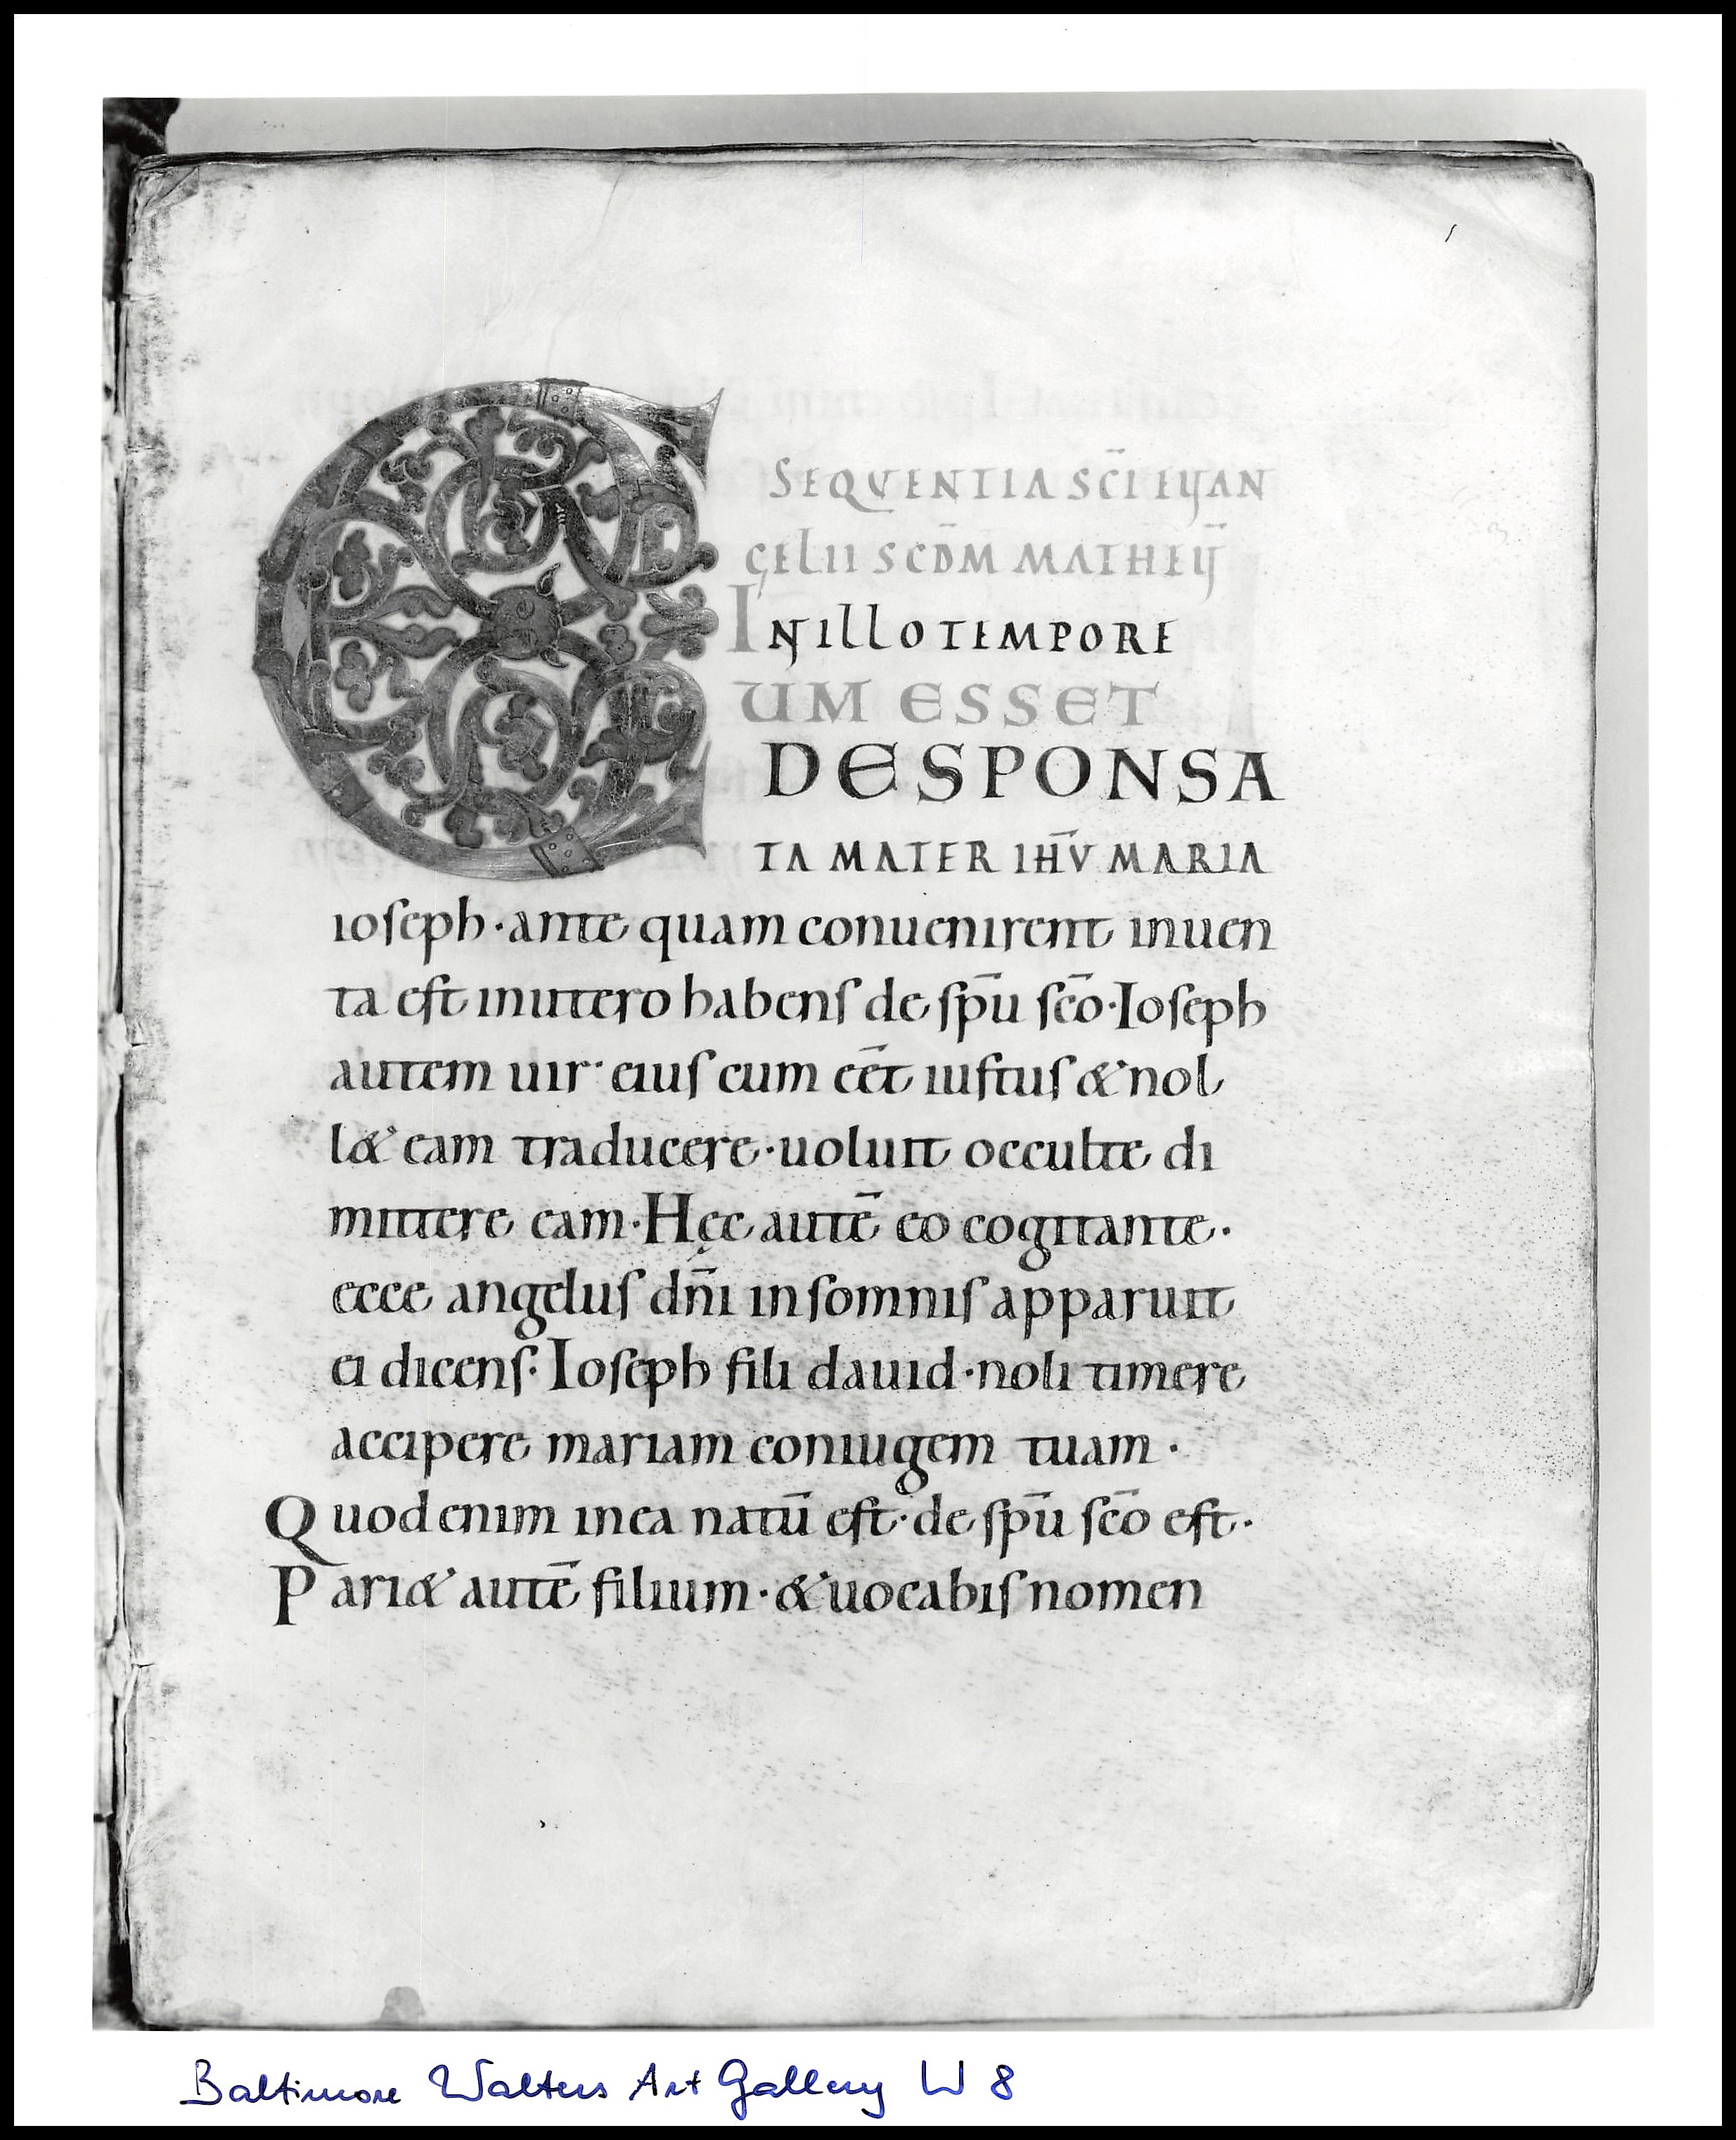 SEQVENTIA SC̄I EVAN
GELII SCD̄M MATHEV̄
IN ILLO TEMPORE
CUM ESSET
DESPONSA
TA MATER IHV̄ MARIA
ioseph·ante quam conuenirent inuen
ta est inutero habens de sp̄u sc̄o·Ioseph
autem uir· eius cum eēt iustus & nol
l& eam traducere·uoluit occulte di
mittere eam·Hęc autē eo cogitante·
ecce angelus dn̄i insomnis apparuit
ei dicens·Ioseph fili dauid·noli timere
accipere mariam coniugem tuam·
Quod enim inea natū est·de sp̄u sc̄o est·
Pari& autē filium·& uocabis nomen
Baltimore Walters Art Gallery W 8